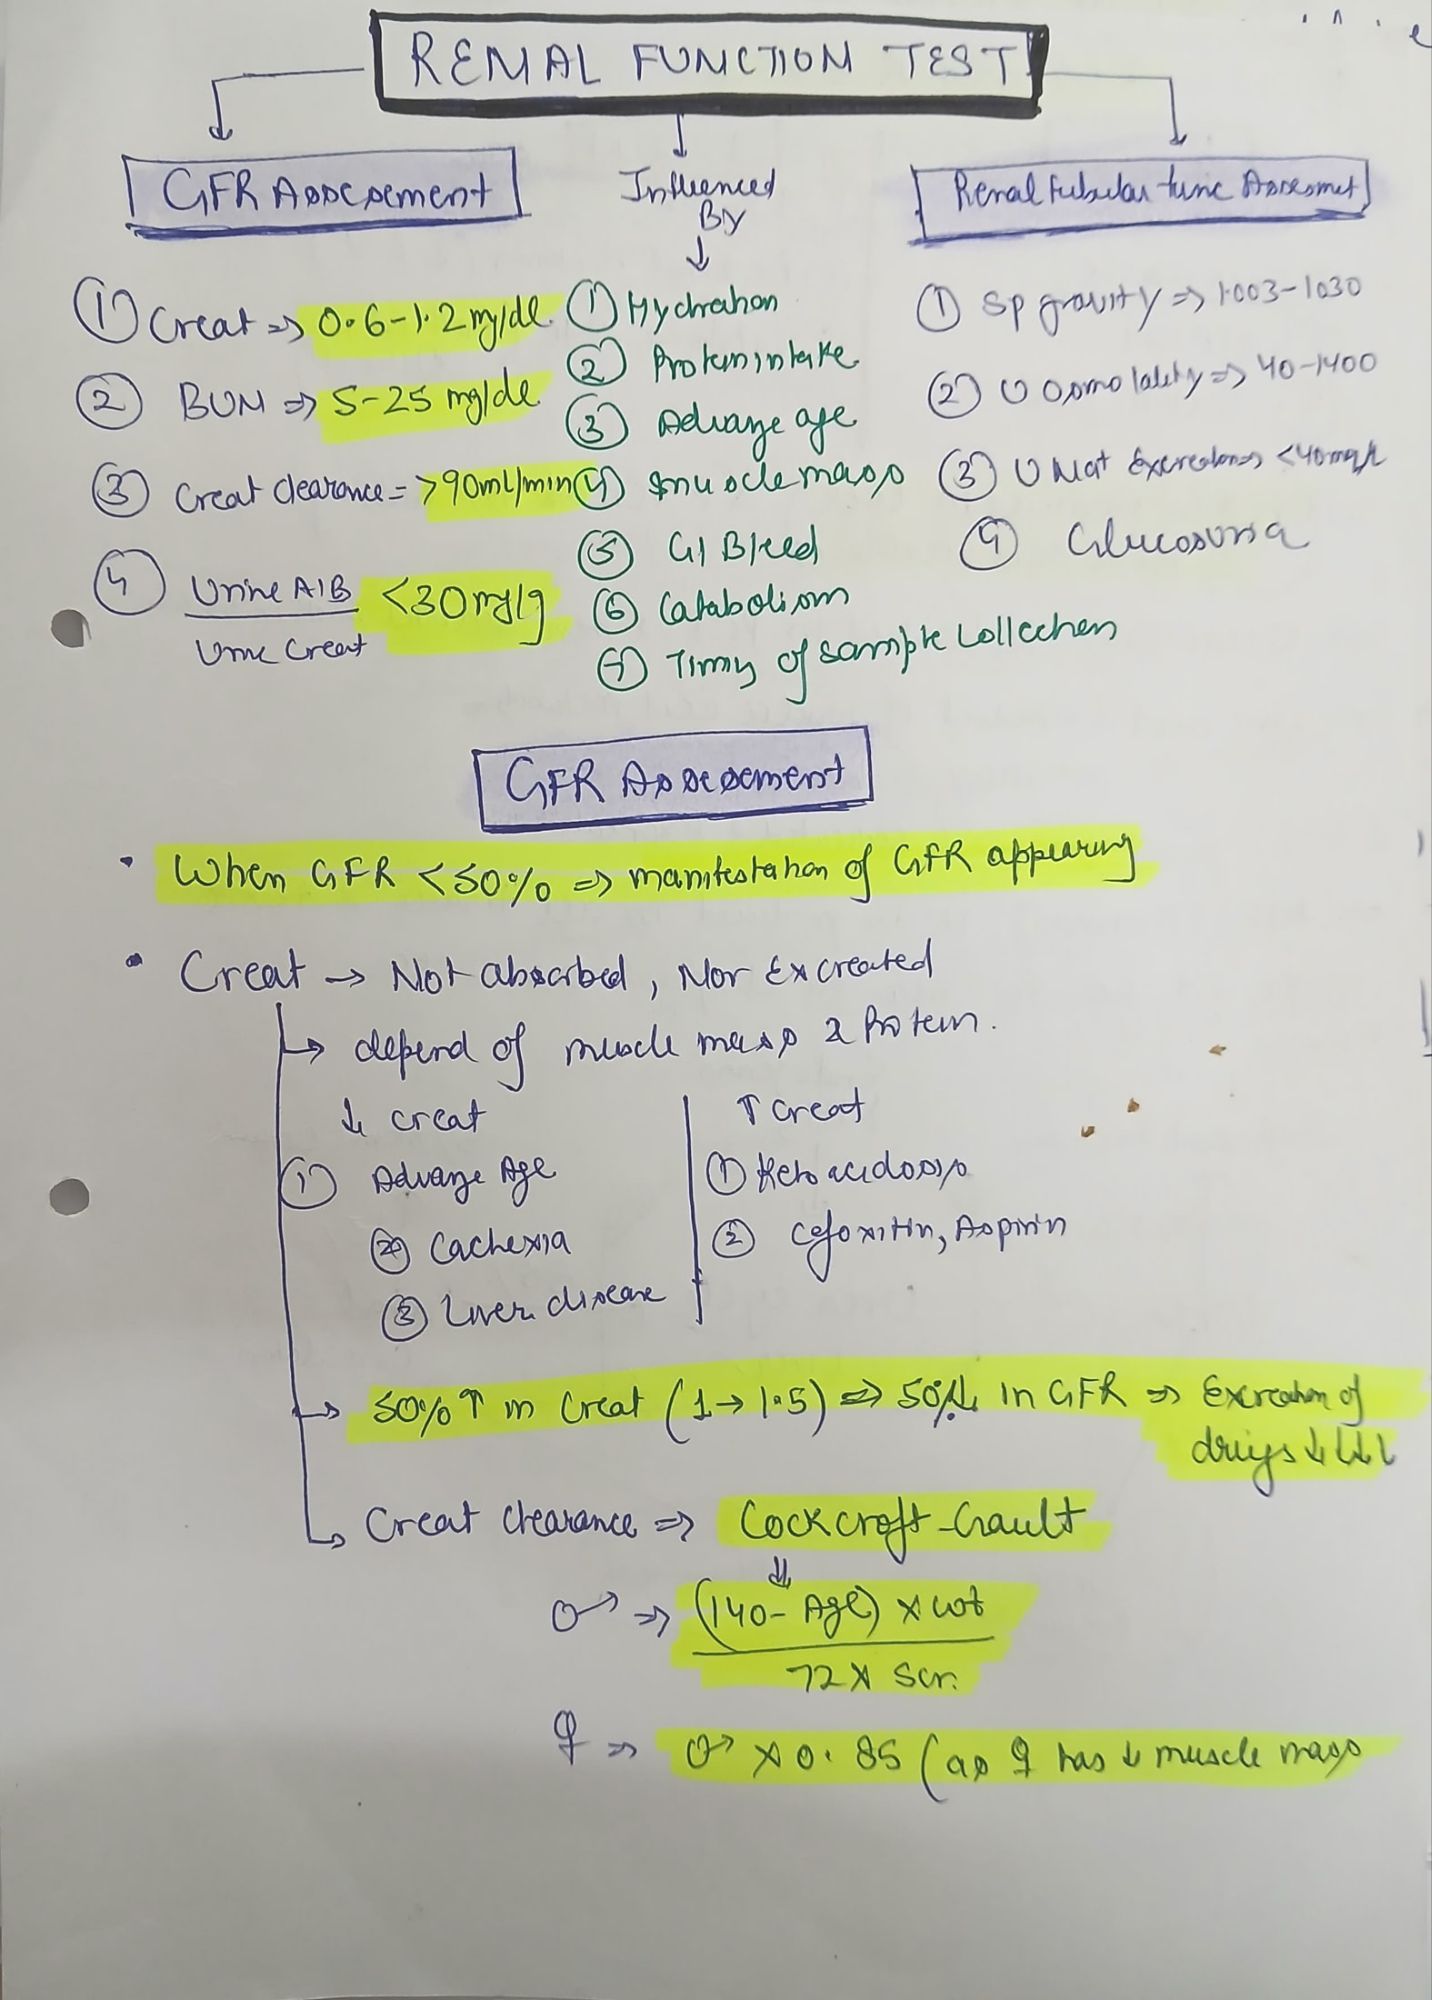 RENAL FUNCTION TEST
GFR Assessment
① Creat => 0.6-1.2 mg/dl
② BUN => 5-25 mg/dl
③ Creat Clearance = >90ml/min
④ Urine AlB <30 mg/g
Urine Creat
Influenced
By
① Hydration
② Protein intake
③ Advange age
④ muscle mass
⑤ GI Bleed
⑥ Catabolism
⑦ Timing of sample Collection
Renal tubular func Assesmet
① Sp gravity => 1.003-1030
② U Osmolality => 40-1400
③ U Na+ Excretion => <40 meq/L
④ Glucosuria
GFR Assessment
• When GFR <50% => manifestation of GFR appearing
• Creat → Not absorbed, Nor Excreated
→ depend of muscle mass & Protein.
↓ creat
① Advange Age
② Cachexia
③ Liver disease
↑ creat
① Keto acidosis
② Cefoxitin, Aspirin
→ 50% ↑ in Creat (1 → 1.5) => 50% ↓ in GFR => Excreation of
drugs ↓↓↓↓
→ Creat clearance => Cockcroft-Gault
⇓
♂ => (140- Age) x wt
72 x Scr.
♀ => ♂ x 0.85 (as ♀ has ↓ muscle mass